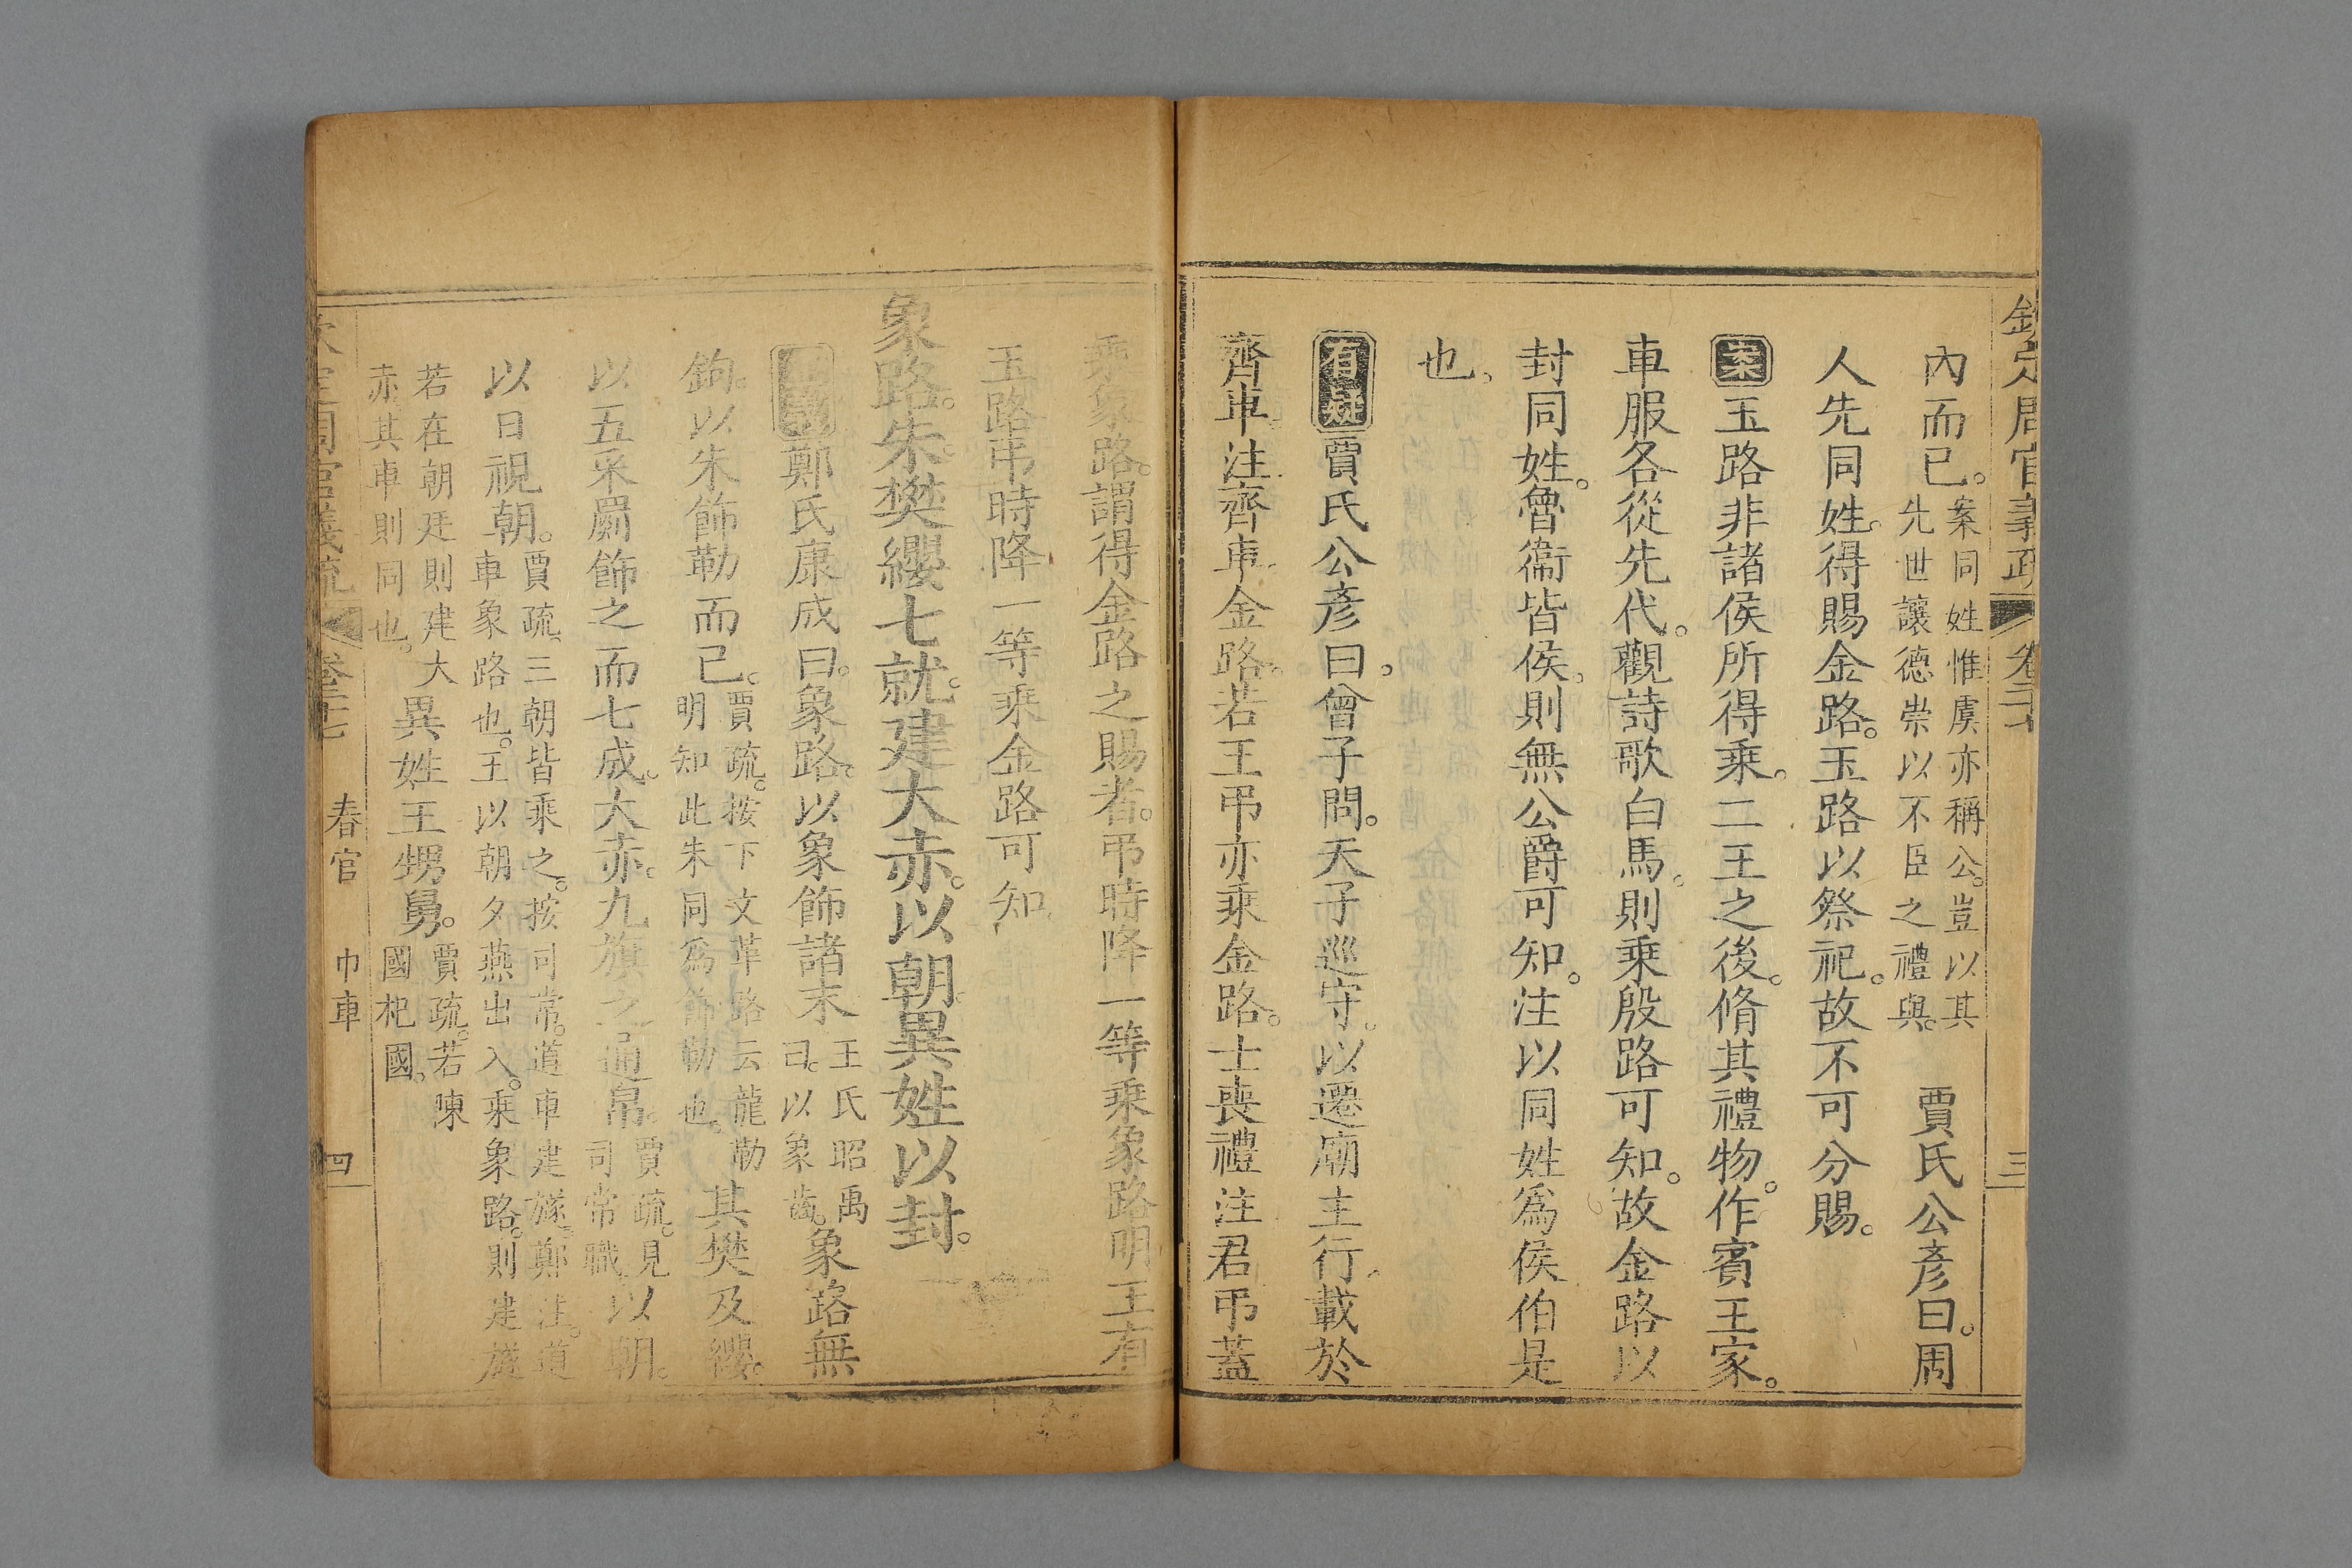 欽定周官義疏 卷二十七 三
內而已。案同姓惟虞亦稱公。豈以其先世讓德崇以不臣之禮與。 賈氏公彥曰。周
人先同姓。得賜金路。玉路以祭祀。故不可分賜。
案玉路非諸侯所得乘。二王之後。脩其禮物。作賓王家。
車服各從先代。觀詩歌白馬。則乘殷路可知。故金路以
封同姓。魯衞皆侯。則無公爵可知。注以同姓爲侯伯是
也。
存疑賈氏公彥曰。曾子問。天子巡守。以遷廟主行。載於
齊車。注齊車。金路。若王弔亦乘金路。士喪禮注君弔蓋
乘象路。謂得金路之賜者。弔時降一等乘象路明王有
玉路弔時降一等乘金路可知
象路。朱。樊纓七就。建大赤。以朝。異姓以封。
鄭氏康成曰。象路。以象飾諸末王氏昭禹曰。以象齒。象路無
鉤。以朱飾勒而已。賈疏。按下文革路云龍勒明知此朱同爲飾勒也。其樊及纓。
以五采罽飾之而七成。大赤。九旗之通帛。賈疏。見司常職以朝。
以日視朝。賈疏。三朝皆乘之。按司常。道車建旞。鄭注。道車象路也。王以朝夕燕出入。乘象路。則建旞
若在朝廷則建大赤其車則同也。異姓王甥舅。賈疏。若陳國杞國。
欽定周官義疏 卷二十七 春官 巾車 四